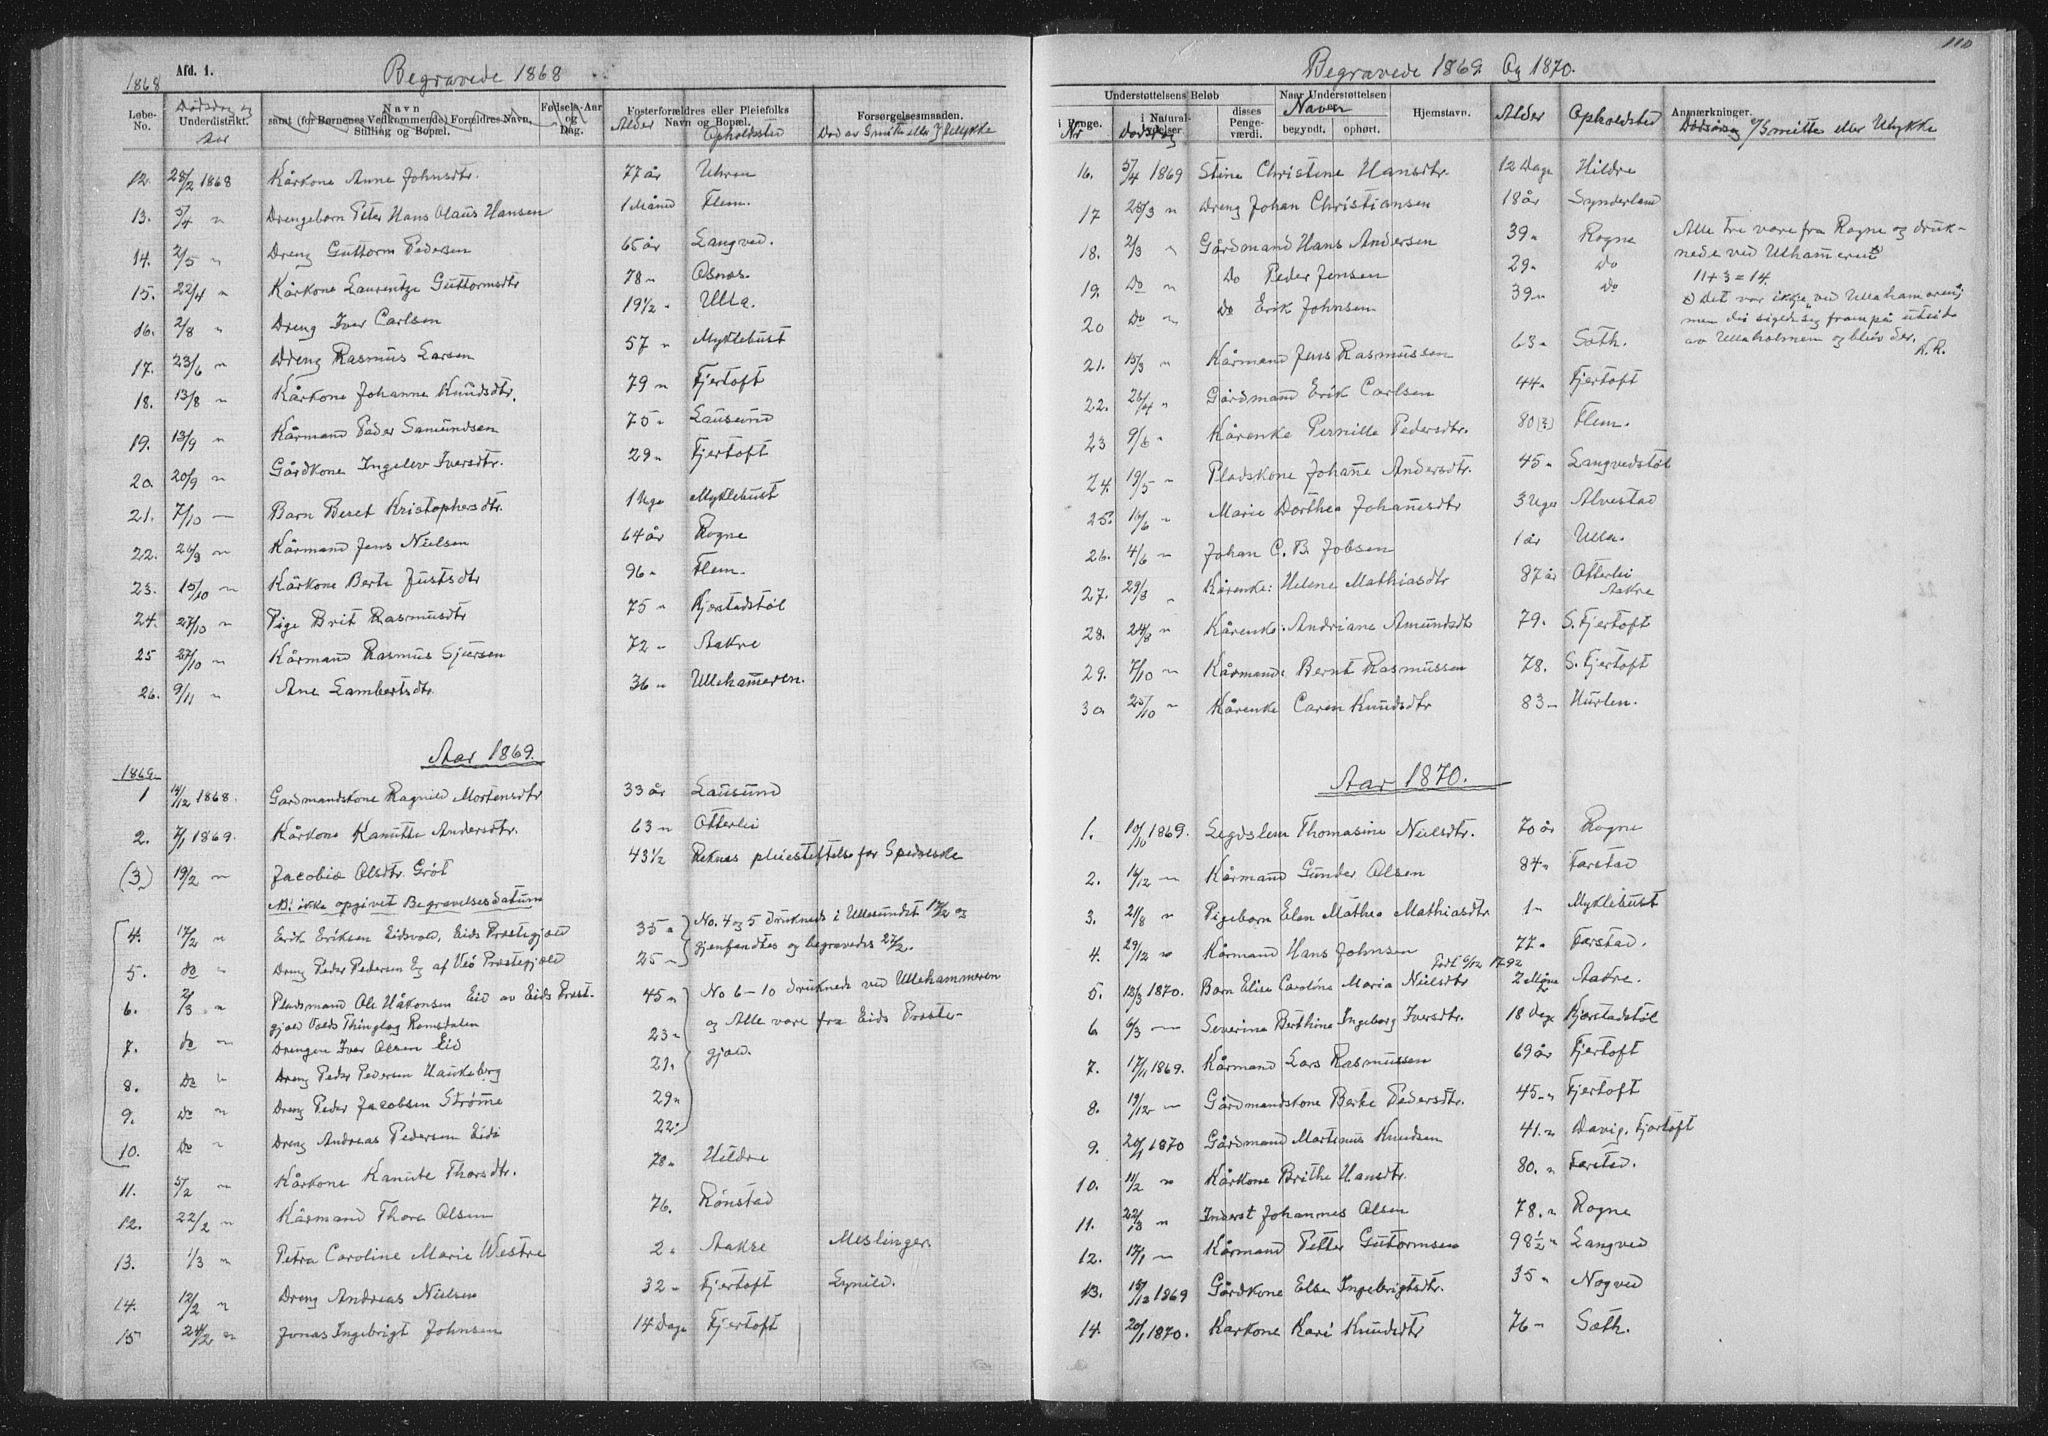 1868 Afd. 1. Begravede 1868
Løbe-No. Underdistrikt. Navn samt (for Børnenes Vedkommende) Forældres Navn, Stilling og Bopæl. Fødsels-Aar og Dag. Fosterforældres eller Pleiefolks Navn og Bopæl. Forsorgelsesmaaden.
Dødsdag og Aar Alder Opholdsted Død av Smitte eller Ulykke
12. 28/2 1868 Kårkone Anne Johnsdtr. 77 år Uhren
13. 5/4 " Drengebarn Peter Hans Olaus Hansen 1 Måned Flem.
14. 2/5 " Dreng Guttorm Pedersen 65 år Langved.
15. 22/4 " Kårkone Laurentze Guttormsdtr 78 " Osnes.
16. 2/8 " Dreng Iver Carlsen 19 1/2 " Ulla.
17. 23/6 " Dreng Rasmus Larsen 57 " Myklebust
18. 13/8 " Kårkone Johanne Knudsdtr. 79 " Fjertoft
19. 13/9 " Kårmand Peder Samundsen 75 " Lausund
20. 20/9 " Gårdkone Ingelev Iversdtr. 29 " Fjertoft
21. 7/10 — Barn Beret Kristophersdtr. 1 Uge Myklebust
22. 26/9 " Kårmand Jens Nielsen 64 år Rogne
23. 15/10 " Kårkone Berte Justsdtr 96 " Flem.
24. 27/10 " Pige Brit Rasmusdtr 75 " Kjerstadstøl
25 27/10 " Kårmand Rasmus Sjursen 72 " Aakre
26. 9/11 " Ane Lambertsdtr. 36 " Ullehameren.
Aar 1869.
1869.
1 14/12 1868. Gardmandskone Ragnild Mortensdtr 33 år Lausund
2. 7/1 1869. Kårkone Kanutte Andersdtr. 63 " Otterlei
(3) 19/2 " Jacobia Olsdtr. Grøt 43 1/2 Reknes pleiestiftelse for Spedalske
NB! ikke opgivet Begravelsesdatum
4. 17/2 " Erik Eriksen Eidsvold, Eids Prestegjæld 35 " No. 4 og 5 druknede i Ullesundet 17/2 og
5. do " Dreng Peder Pedersen Eg af Veø Prestegjæld 25 " gjenfandtes og begravedes 27/2.
6. 2/3 " Pladsmand Ole Håkonsen Eid av Eids Prest- 45 " No 6–10 druknede ved Ullehammeren
gjæld Volds Thinglag Romsdalen og Alle vare fra Eids Preste-
7. do " Drengen Iver Olsen Eid 23 " gjæld.
8. Do " Dreng Peder Pedersen Haukeberg 21.
9. Do " Dreng Peder Jacobsen Strømme 29 "
10. Do " Dreng Andreas Pedersen Eide 22.
11. 5/2 " Kårkone Kanute Thorsdtr. 78 " Hildre
12. 22/2 " Kårmand Thore Olsen 76. Rønstad
13. 1/3 " Petra Caroline Marie Westre 2 " Aakre Meslinger.
14. 12/2 " Dreng Andreas Nielsen 32 " Fjertoft Lynild.
15 24/2 " Jonas Ingebrigt Johnsen 14 Dage Fjertoft
110
Begravede 1869. Og 1870.
Understøttelsens Beløb i Penge. i Naturalydelser disses Pengeværdi. Naar Understøttelsen begyndt. ophørt. Hjemstavn. Anmærkninger.
Nr Dødsdag Navn Alder Opholdsted Dødsårsag v/Smitte eller Ulykke
16. 5/4 1869 Stine Christine Hansdtr. 12 Dage Hildre
17 28/3 " Dreng Johan Christiansen 18 år Synderland
18. 2/3 " Gårdmand Hans Andersen 39 " Rogne Alle tre vare fra Rogne og druk-
19. Do " Do Peder Jensen 29 " Do nede ved Ulhameren x)
11 + 3 = 14.
20 Do " Do Erik Johnsen 39 " Do x) Det var ikkje "ved Ullahamaren",
men dei siglde seg fram på utsida
21. 15/3 " Kårmand Jens Rasmussen 63 " Sæth. av Ullaholmen og bleiv der. K.R.
22. 26/4 " Gårdmand Erik Carlsen 44 " Fjertoft
23 9/6 " Kårenke Pernille Pedersdtr. 80 (?) Flem.
24. 19/5 " Pladskone Johanne Andersdtr. 45 " Langvedstøl
25. 16/6 " Marie Dorthea Johannesdtr 3 Uger Alvestad
26. 4/6 " Johan C. B. Jobsen 1 år Ulla.
27. 29/8 " Kårenke: Helene Mathiasdtr 87 år Otterlei Aakre
28. 24/8 " Kårenke: Andriane Amundsdtr 79. S. Fjertoft
29. 7/10 " Kårmand: Bernt Rasmussen 78. S. Fjertoft
30 25/10 " Kårenke Caren Knudsdtr 83 " Hurlen.
Aar 1870.
1. 10/10 1869. Legdslem Thomasine Nielsdtr. 70 år Rogne
2. 14/12 " Kårmand Gunder Olsen 84 " Farstad
3. 21/8 " Pigebarn Elen Mathea Mathiasdtr 1 " Myklebust
4. 29/12 " Kårmand Hans Johnsen 77 " Farstad.
født 6/12 1792
5. 13/3 1870. Barn Elise Caroline Maria Nielsdtr 2 Måneder Aakre.
6 6/3 — Severine Berthine Ingeborg Iversdtr. 18 Dage Kjerstadstøl
7. 17/11 1869. Kårmand Lars Rasmussen 69 år Fjertoft
8. 19/12 — Gårdmandskone Berte Pedersdtr. 45 " Fjertoft
9. 20/1 1870 Gårdmand Martinus Knudsen 41 " Davig, Fjertoft
10. 11/2 " Kårkone Brithe Hansdtr. 80. " Farstad.
11. 22/3 " Inderst Johannes Olsen 78. " Rogne
12. 17/1 — Kårmand Petter Gutormsen 98 1/2 " Langved
13. 15/12 1869 Gårdkone Else Ingebrigtsdtr. 35 " Nogved
14. 20/1 1870. Karkone Kari Knudsdtr 76 " Sæth.